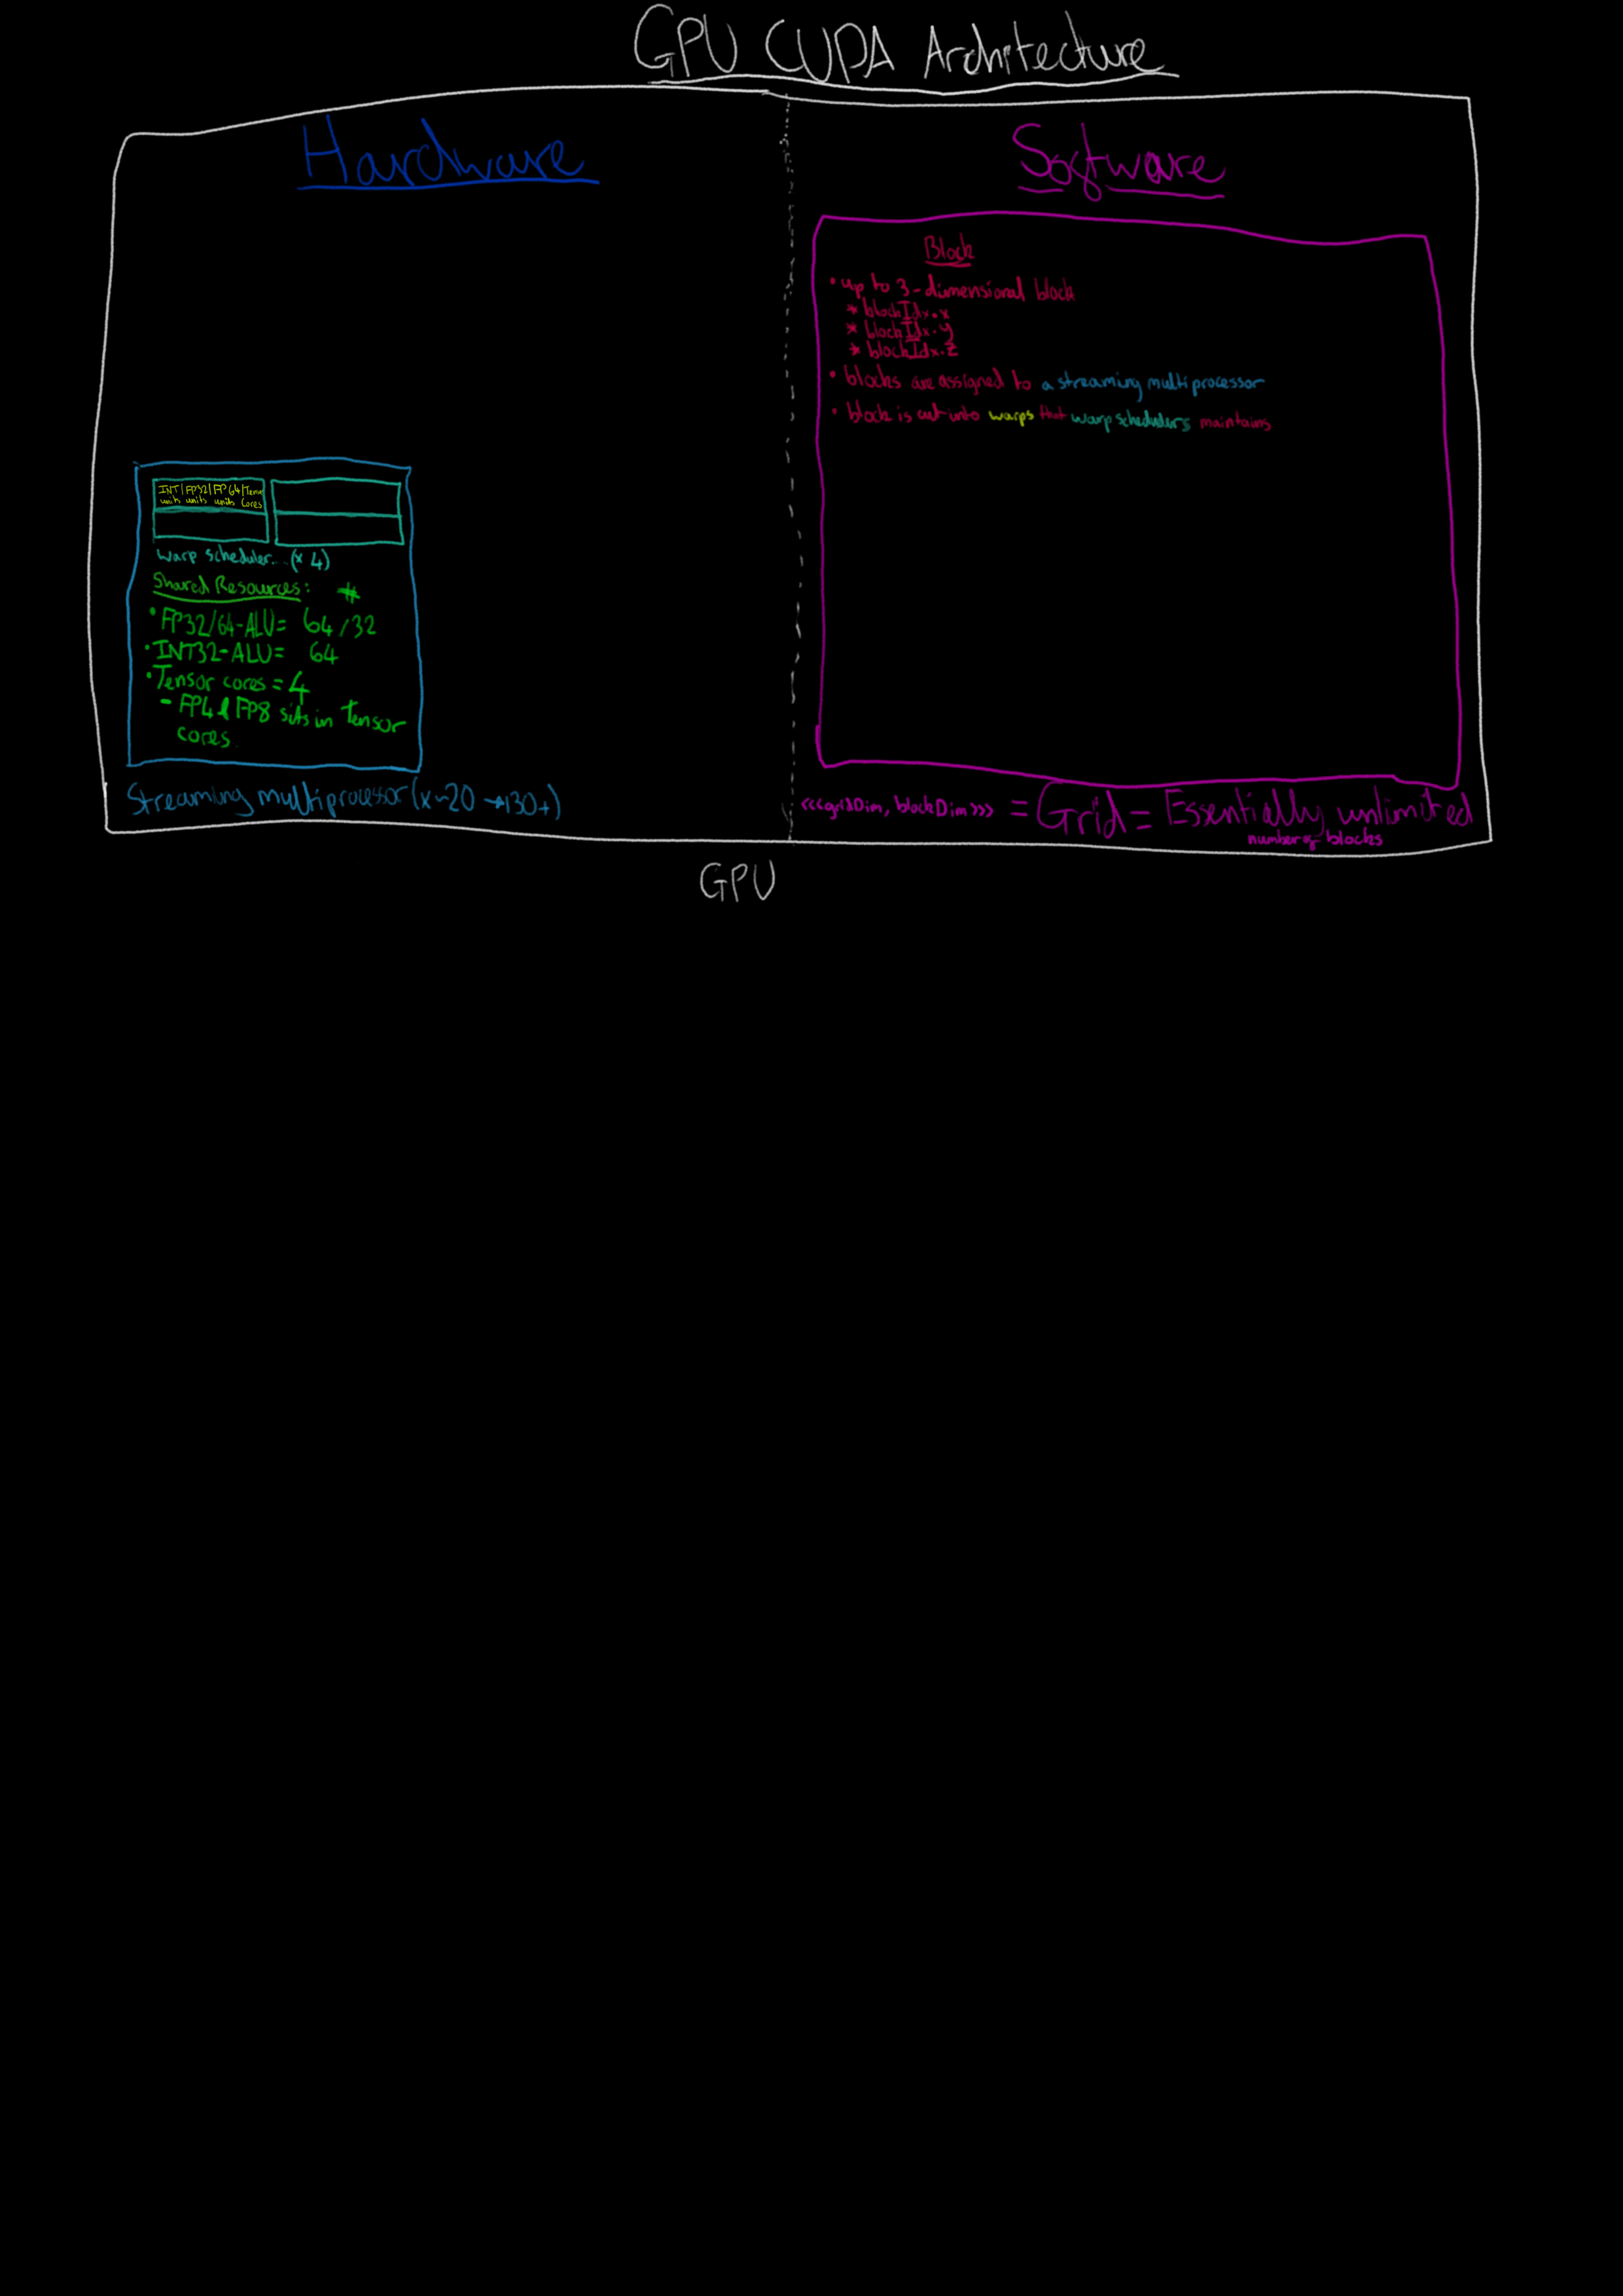 GPU CUDA Architecture
Hardware
INT/FP32/FP64/Tens
units units units cores
warp scheduler... (x 4)
Shared Resources: #
• FP32/64-ALU = 64/32
• INT32-ALU = 64
• Tensor cores = 4
- FP4 & FP8 sits in Tensor
cores
Streaming multiprocessor (x ~20 → 130+)
Software
Block
• up to 3-dimensional block
* blockIdx.x
* blockIdx.y
* blockIdx.z
• blocks are assigned to a streaming multiprocessor
• block is cut into warps that warp schedulers maintains
<<<gridDim, blockDim>>> = Grid = Essentially unlimited
number of blocks
GPU